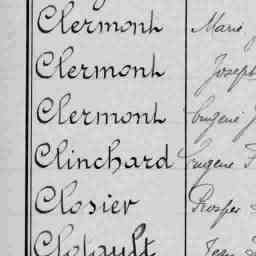 Clermont Marie
Clermont Joseph
Clermont Eugène J
Clinchard Eugène F
Closier Prosper
Clotault Jean